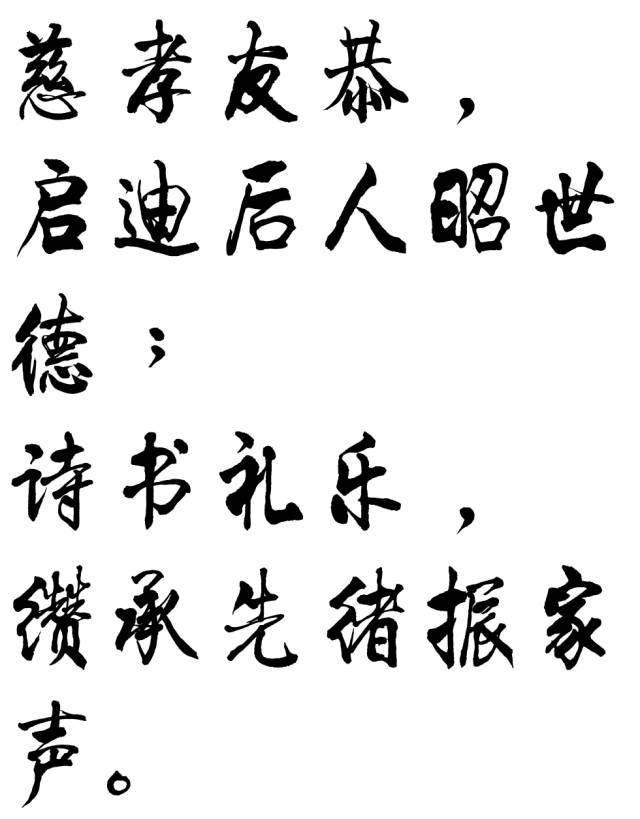 慈孝友恭，
启迪后人昭世
德；
诗书礼乐，
缵承先绪振家
声。